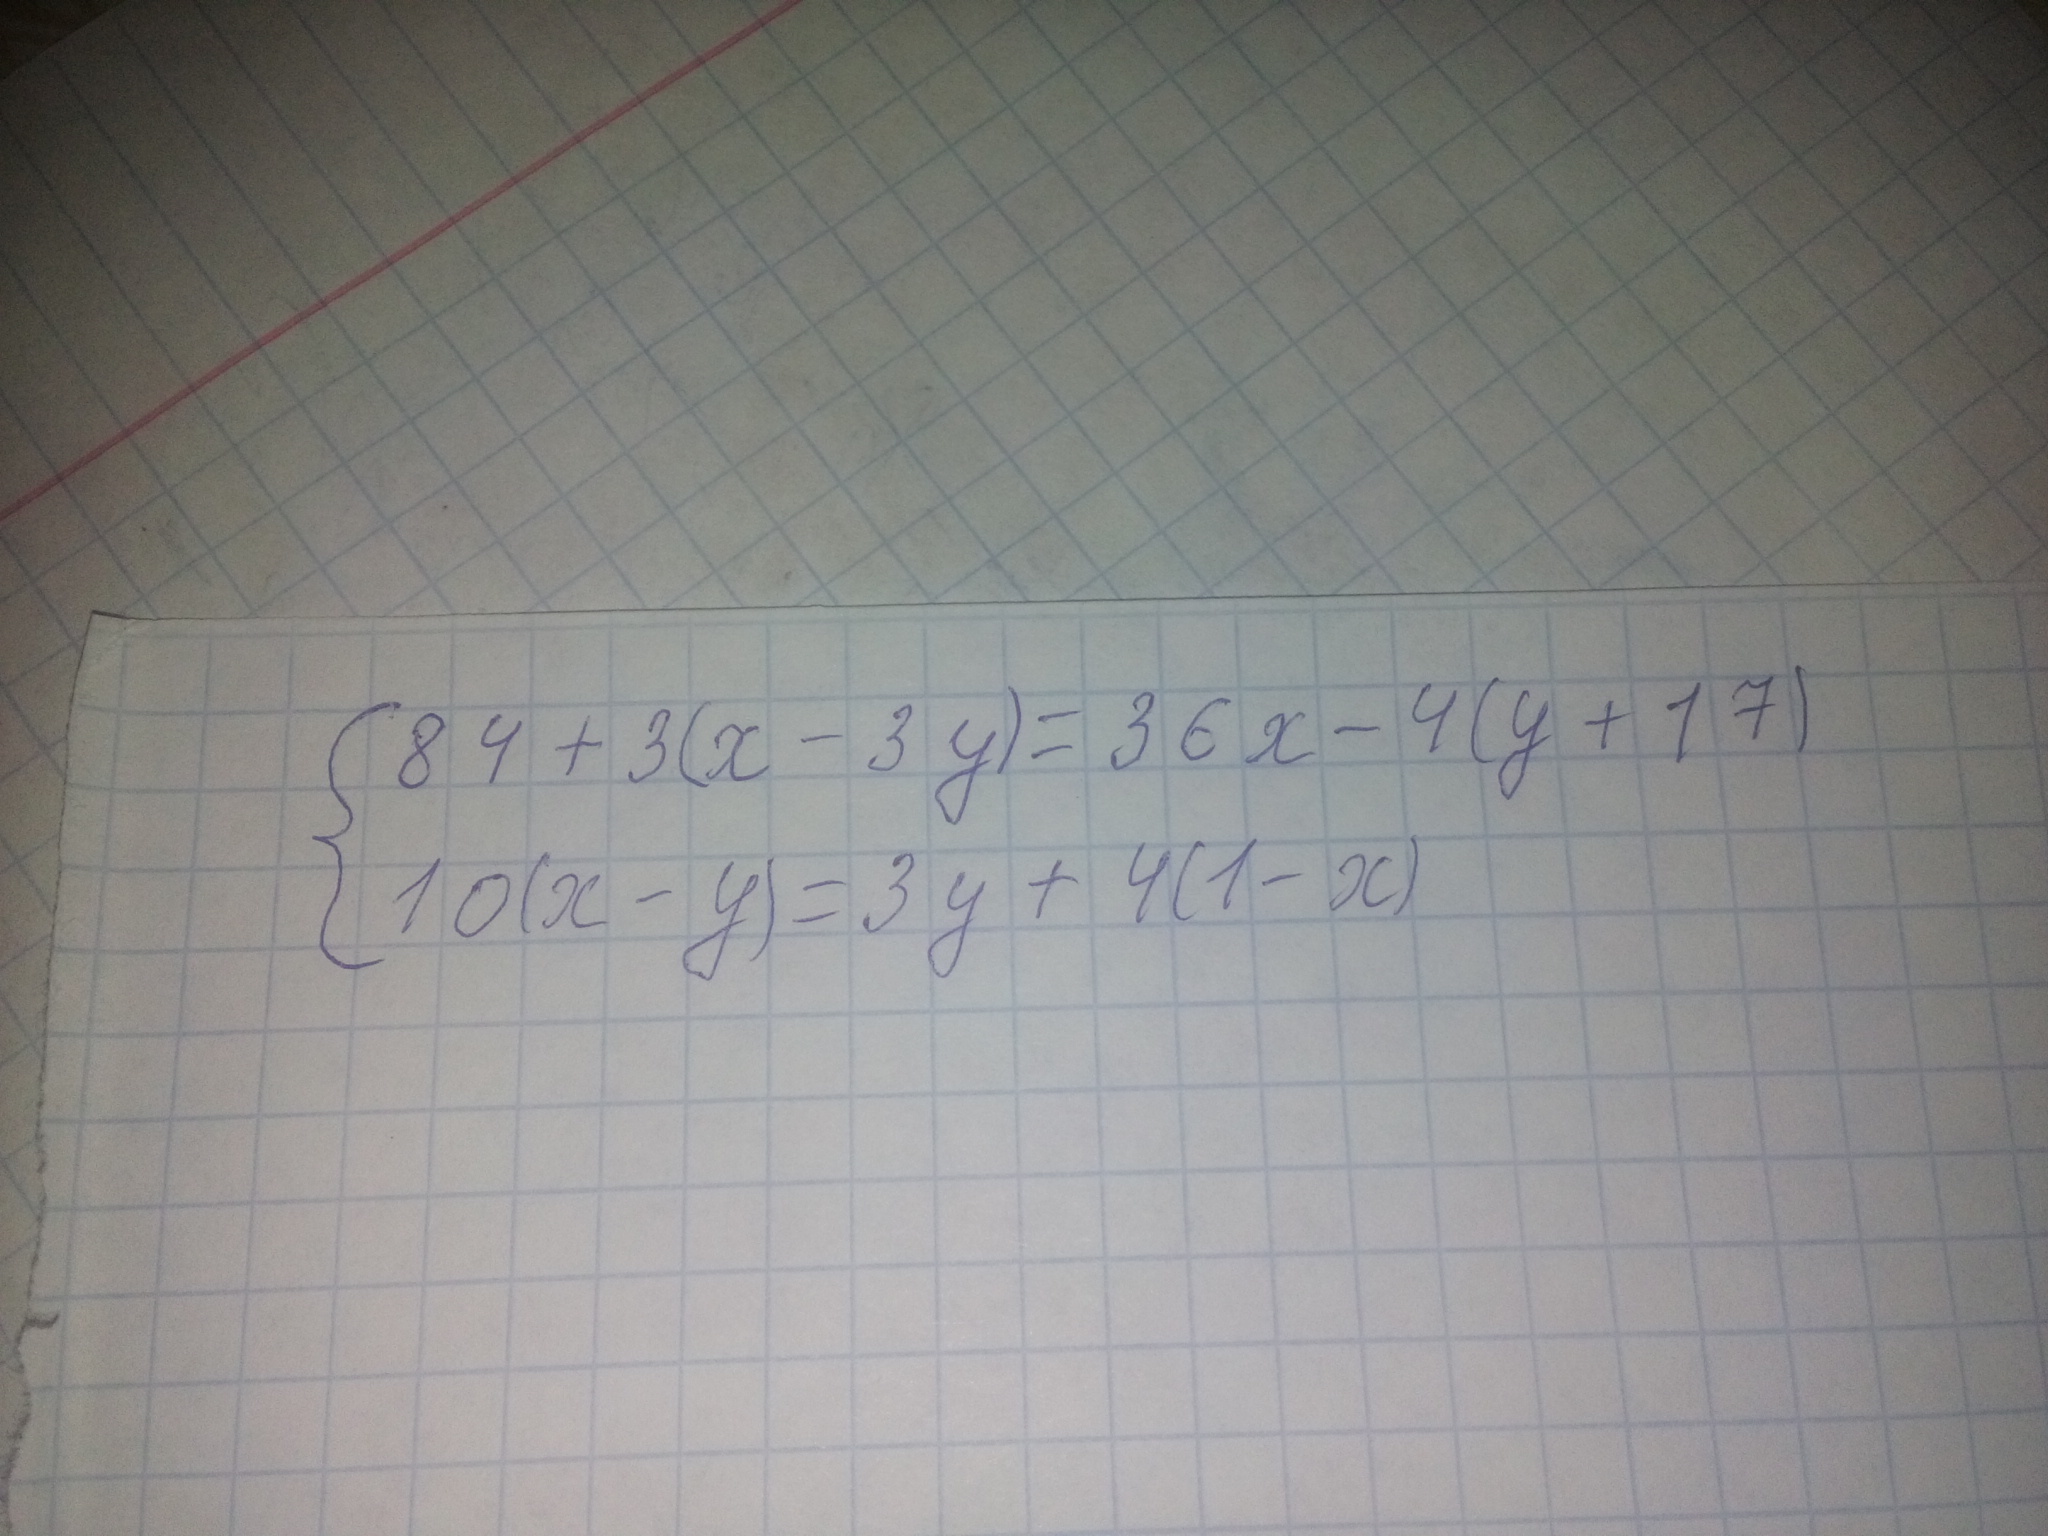 84+3(x-3y)=36x-4(y+17)
10(x-y)=3y+4(1-x)